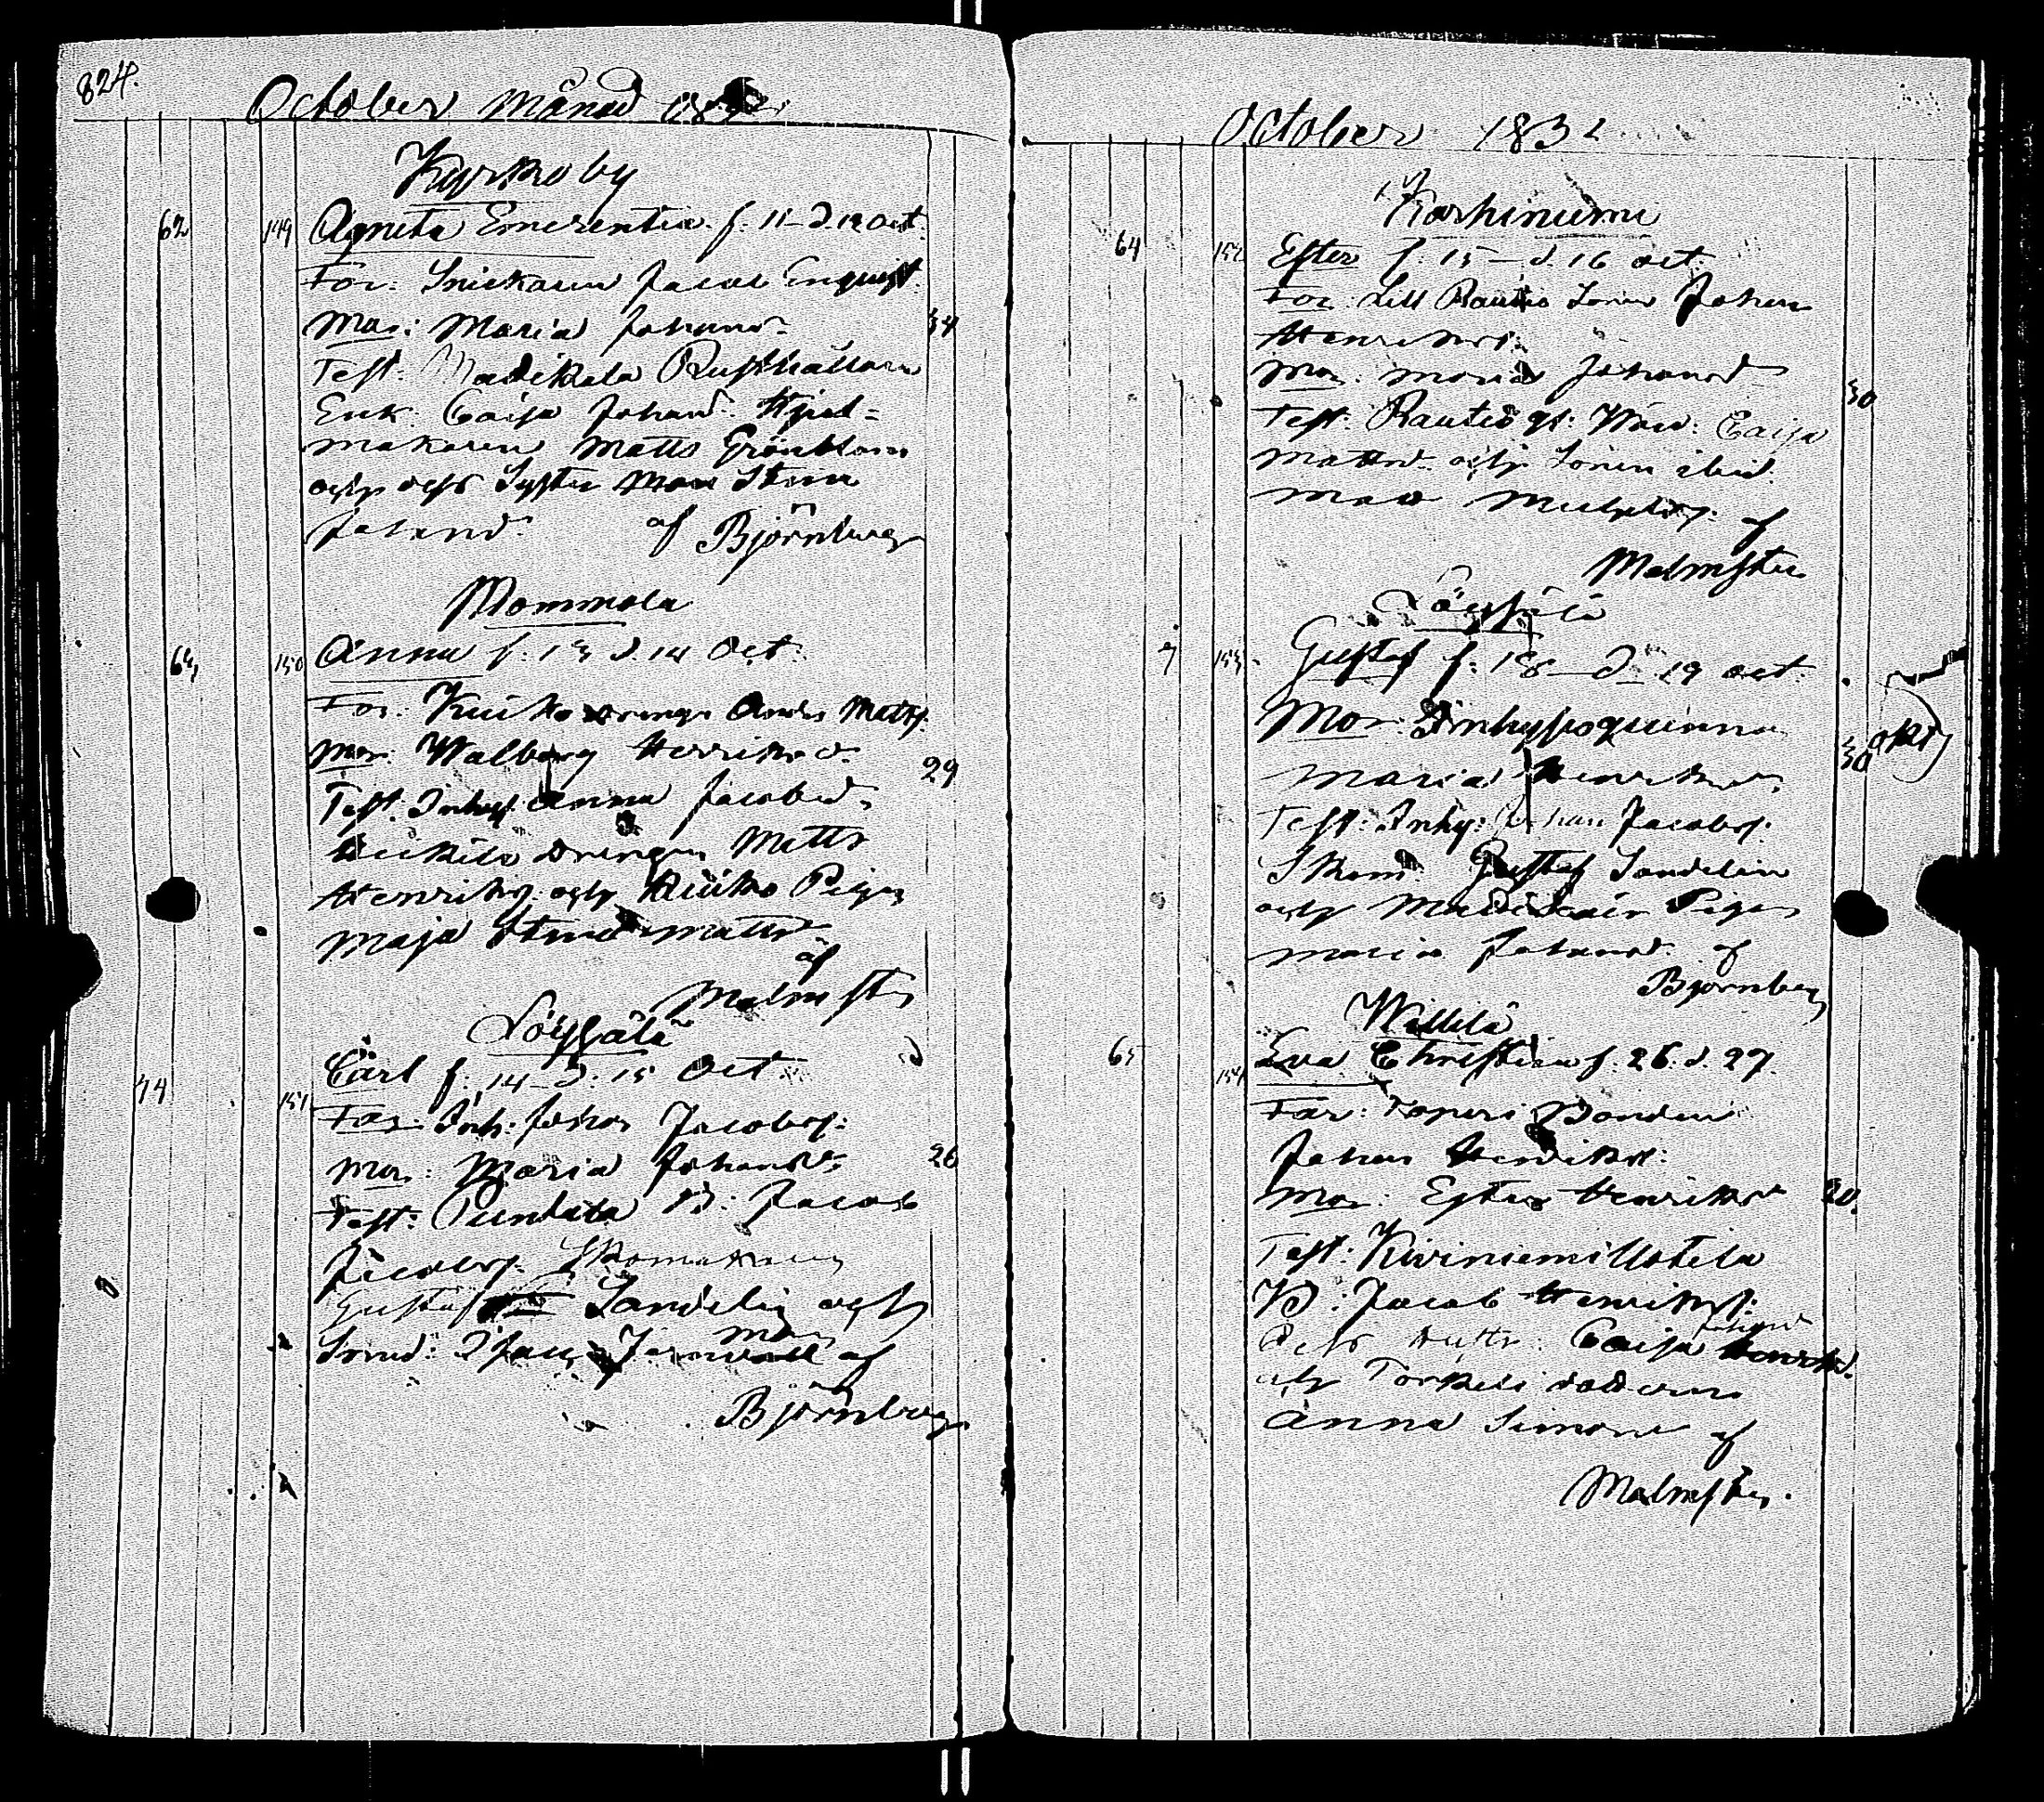 824.
October Månad 183
Kyrkoby
62 149 Agneta Emerentia. f. 11 – d. 12 Oct.
Far: Snickaren Jacob Enquist.
Mor: Maria Johansdr 34
Test. Rusthållaren
Enk. Caisa Johansd. Hjul=
makaren Matts Grönblom
och dess Syster Stina
Johansd. af Björnberg
Mommola
63 150 Anna f: 13 d. 14 Oct.
Far: Kuiko drengn Anders Matts.
Mor: Walborg Henriksd. 29
Test. Inhys: Anna Jacobsd.
drengen Matts
Henriks. och Kuiko Pigan
Maja Stina Mattsd.
af
Malmsten
Löyssälä
44 151 Carl f: 14 – d. 15 Oct
Far: Inh: Johan Jacobs.
Mor: Maria Johansdr 26
Test: B: Jacob
Jacobs. Skomakaren
Gustaf Sandelin och
af
Björnberg
October 1832
Karhiniemi
64 152 Ester f: 15 – d. 16 oct.
Far: Lill Rautio Sonen Johan
Henriks.
Mor: Maria Johansd 30
Test. Rautio gl: Caisa
Mattsd. och Sonen ibid.
af
Malmsten
Löyssälä
7 153. Gustaf f: 18 – d 19 oct.
Mor: Inhyssqvinna
Maria Henriksdr 30
Test: Inhy: Johan Jacobs.
Skom. Gustaf Sandelin
och Pigan
Maria Johansd. af
Björnberg
Willilä
65 154 Eva Christina f. 26. d. 27.
Far: Bonden
Johan Henriks:
Mor: Ester Henriksdr 20.
Test: Kiviniemi Uotila
B: Jacob Henriks:
Dess Hustr. Caisa Johansd
och
Anna Simonsdr af
Malmsten.